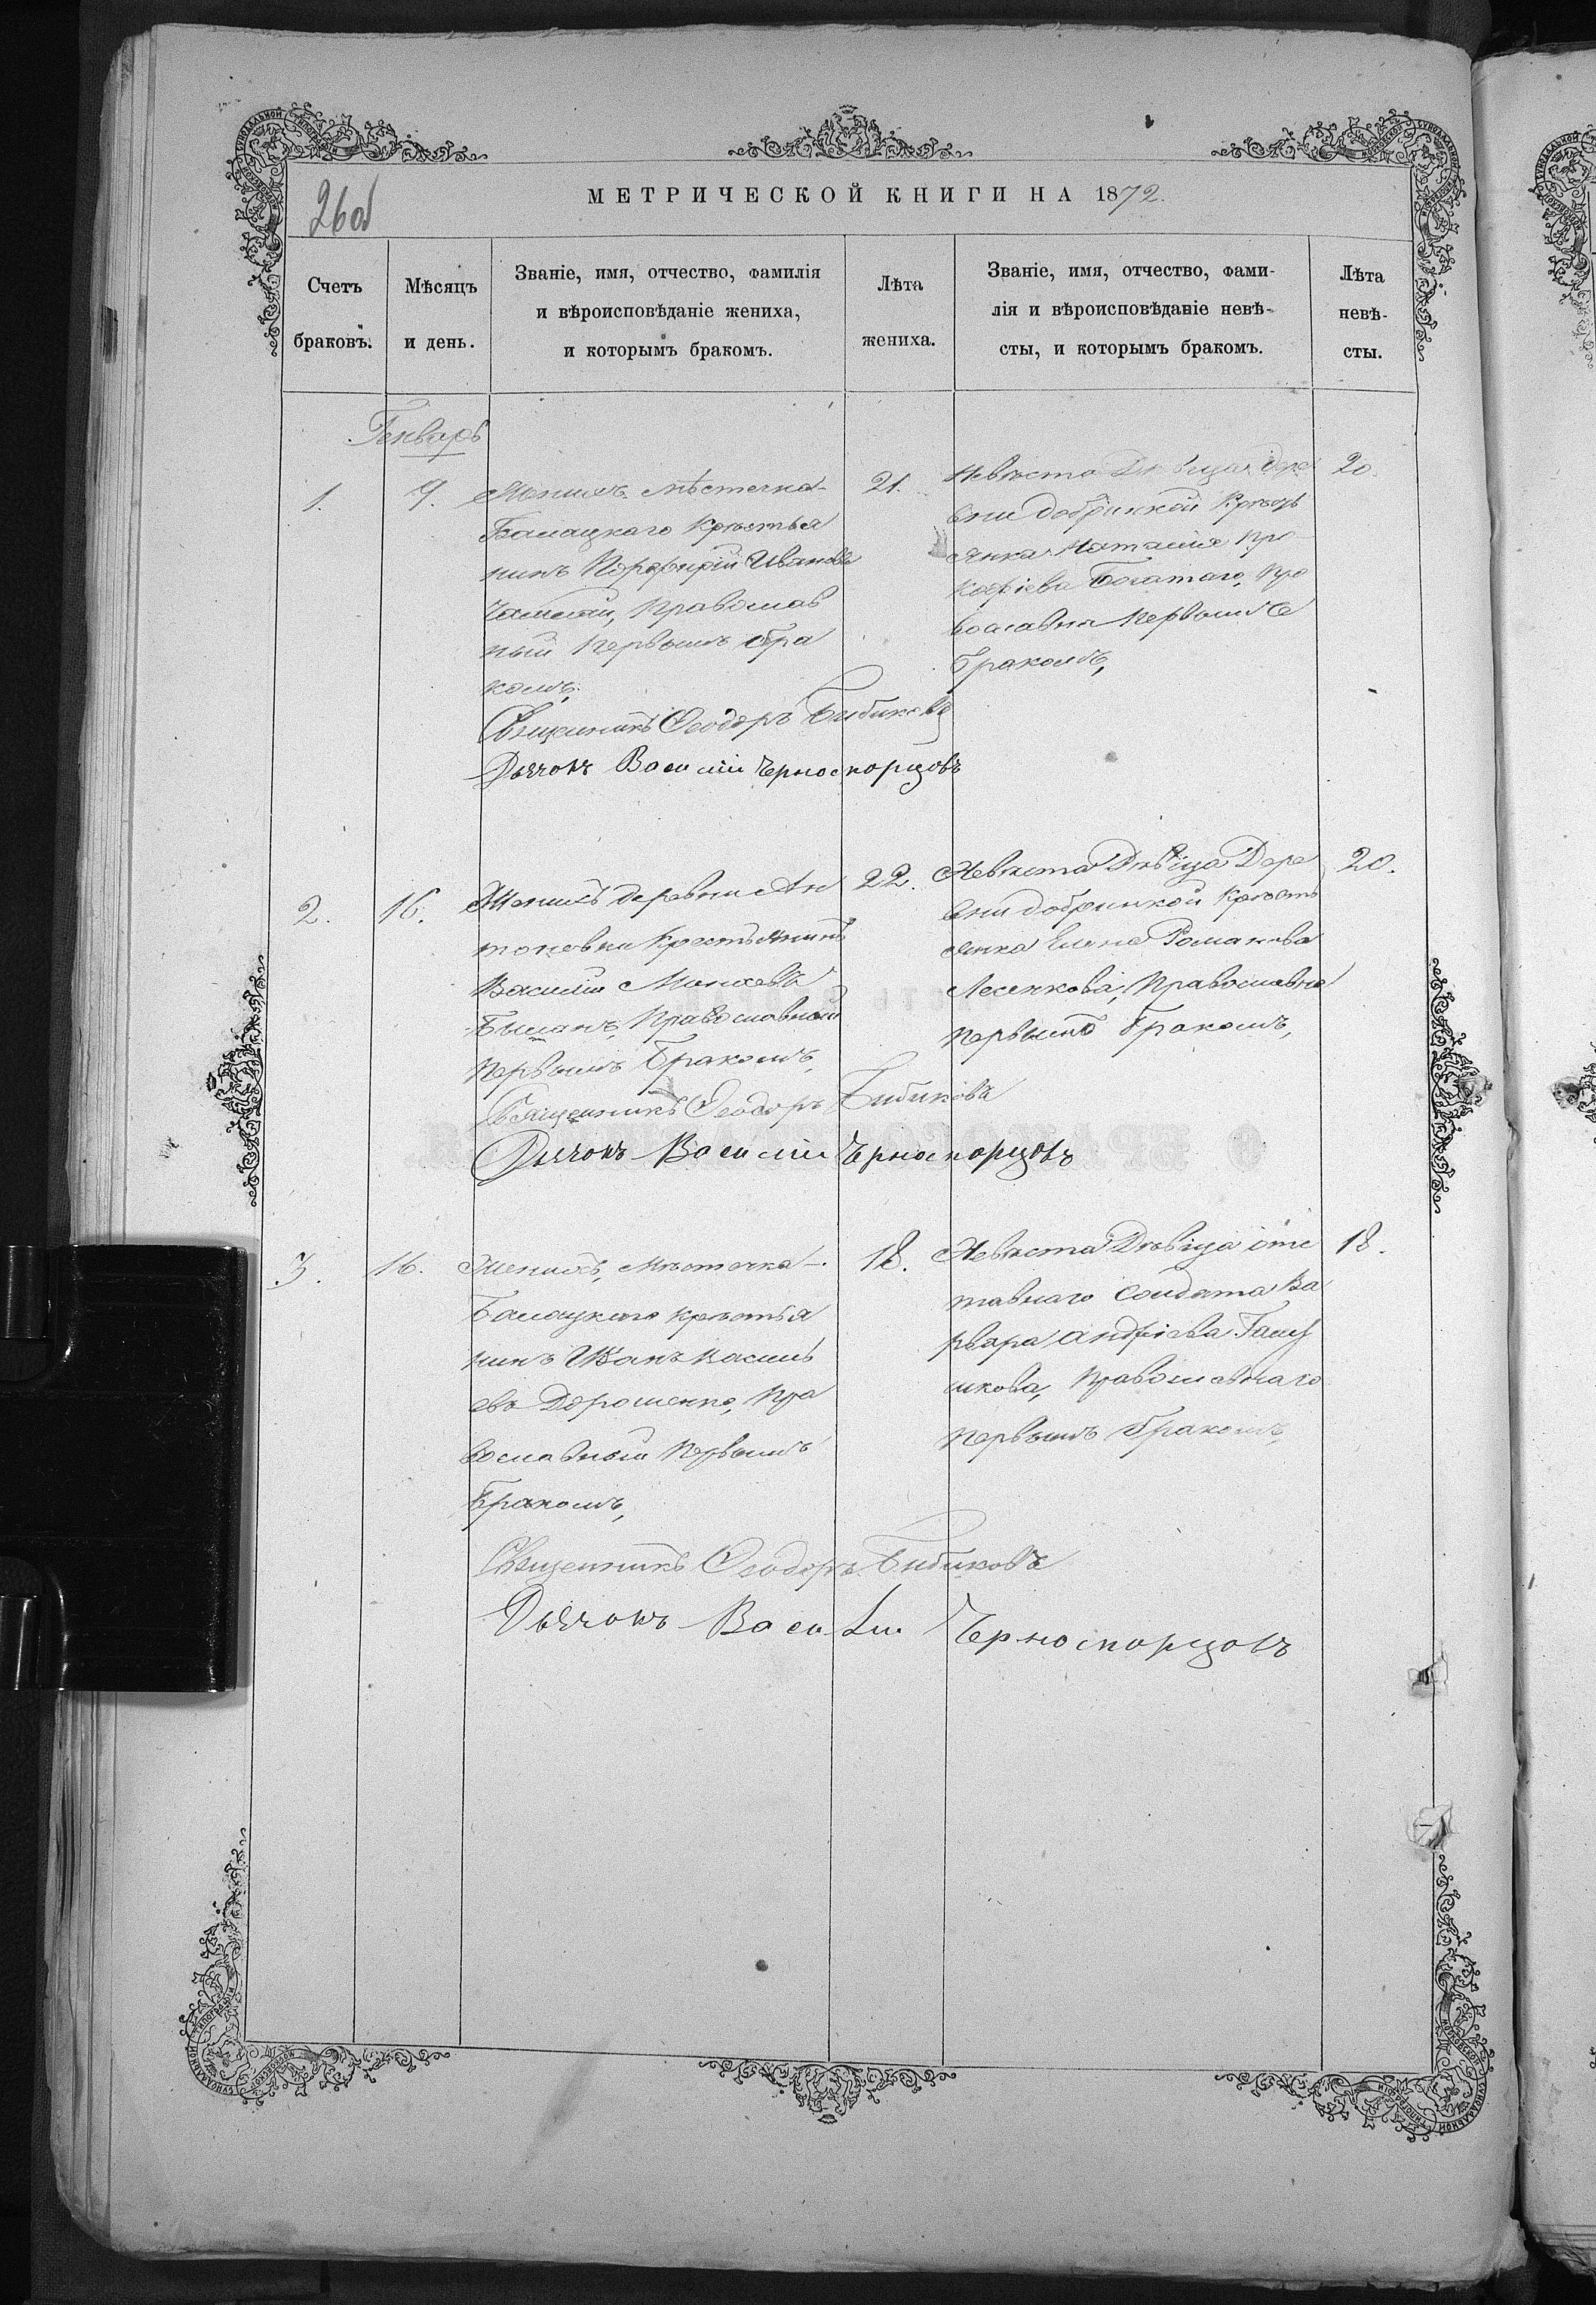 26об
МЕТРИЧЕСКОЙ КНИГИ НА 1872.
Счетъ браковъ.
Мѣсяцъ и день.
Званіе, имя, отчество, фамилія
и вѣроисповѣданіе жениха,
и которымъ бракомъ.
Лѣта жениха.
Званіе, имя, отчество, фами-
лія и вѣроисповѣданіе невѣ-
сты, и которымъ бракомъ.
Лѣта невѣ-
сты.
Генварь
1.
9.
Женихъ мѣстечка
Балацкаго Крѣстья
нинъ Порфирій Ивановъ
Православ
ный Первымъ бра
комъ,
Священникъ Ѳеодоръ Бибиковъ
Дьячокъ Василій Черноскорцовъ
21.
Невѣста Дѣвица дере
вни добринкой Крѣсть
янка Наталія Про
кофіева Богатаго, Пра
вославна Первымъ
бракомъ,
20
2.
16.
Женихъ деревни Ан
тоновки Крестьянинъ
Василій
Православный
Первымъ Бракомъ,
Священникъ Ѳеодоръ Бибиковъ
Дьячокъ Василій Черноскорцовъ
22.
Невѣста Дѣвица Дере
вни добринкой Крѣсть
янка Елена Романова
Лесенкова, Православна
первымъ бракомъ,
20.
3.
16.
Женихъ, Мѣстечка
Балацкаго крѣстья
нинъ Иванъ Василь
евъ Дорошенко, Пра
вославный Первымъ
Бракомъ,
Священникъ Ѳеодоръ Бибиковъ
Дьячокъ Василій Черноскорцовъ
18.
Невѣста Дѣвица отс
тавнаго Солдата Ва
рвара Андріева Галу
шкова, Православнаго
первымъ бракомъ,
18.